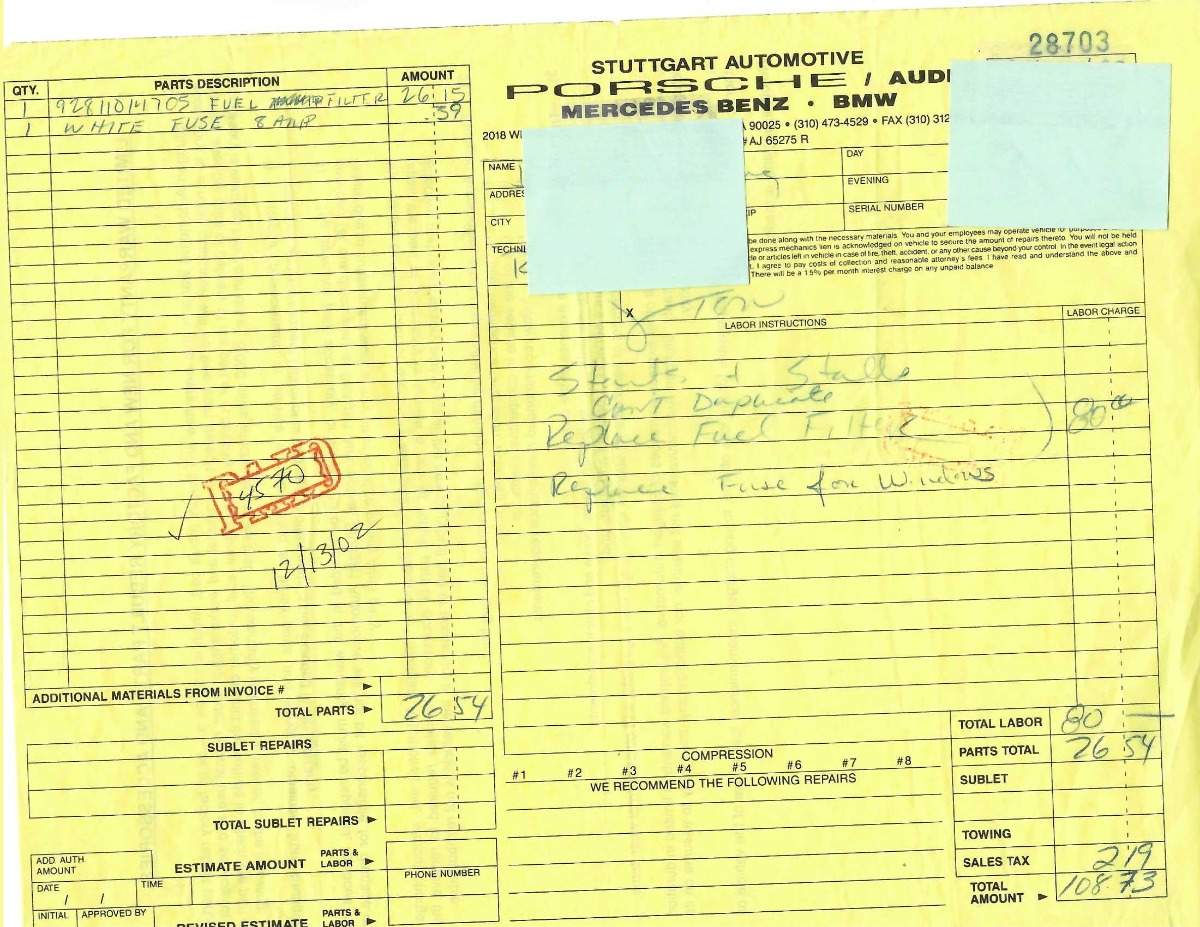 28703
STUTTGART AUTOMOTIVE
PORSCHE / AUDI
MERCEDES BENZ • BMW
2018 WI A 90025 • (310) 473-4529 • FAX (310) 312
# AJ 65275 R
QTY. PARTS DESCRIPTION AMOUNT
1 92811014705 FUEL FILTER 26 15
1 WHITE FUSE 8 AMP .39
NAME DAY
ADDRES EVENING
CITY IP SERIAL NUMBER
TECHNI
be done along with the necessary materials. You and your employees may operate vehicle for
express mechanics lien is acknowledged on vehicle to secure the amount of repairs thereto. You will not be held
le or articles left in vehicle in case of fire, theft, accident, or any other cause beyond your control. In the event legal action
I agree to pay costs of collection and reasonable attorney's fees. I have read and understand the above and
There will be a 1.5% per month interest charge on any unpaid balance
X
LABOR INSTRUCTIONS LABOR CHARGE
Starts + Stalls
Can't Duplicate
Replace Fuel Filter 80 00
Replace Fuse for Windows
4570
12/13/02
ADDITIONAL MATERIALS FROM INVOICE #
TOTAL PARTS 26 54
SUBLET REPAIRS
TOTAL SUBLET REPAIRS
ADD AUTH AMOUNT
ESTIMATE AMOUNT PARTS & LABOR
DATE / / TIME
PHONE NUMBER
INITIAL APPROVED BY
REVISED ESTIMATE PARTS & LABOR
COMPRESSION
#1 #2 #3 #4 #5 #6 #7 #8
WE RECOMMEND THE FOLLOWING REPAIRS
TOTAL LABOR 80 —
PARTS TOTAL 26 54
SUBLET
TOWING
SALES TAX 2 19
TOTAL AMOUNT 108 73